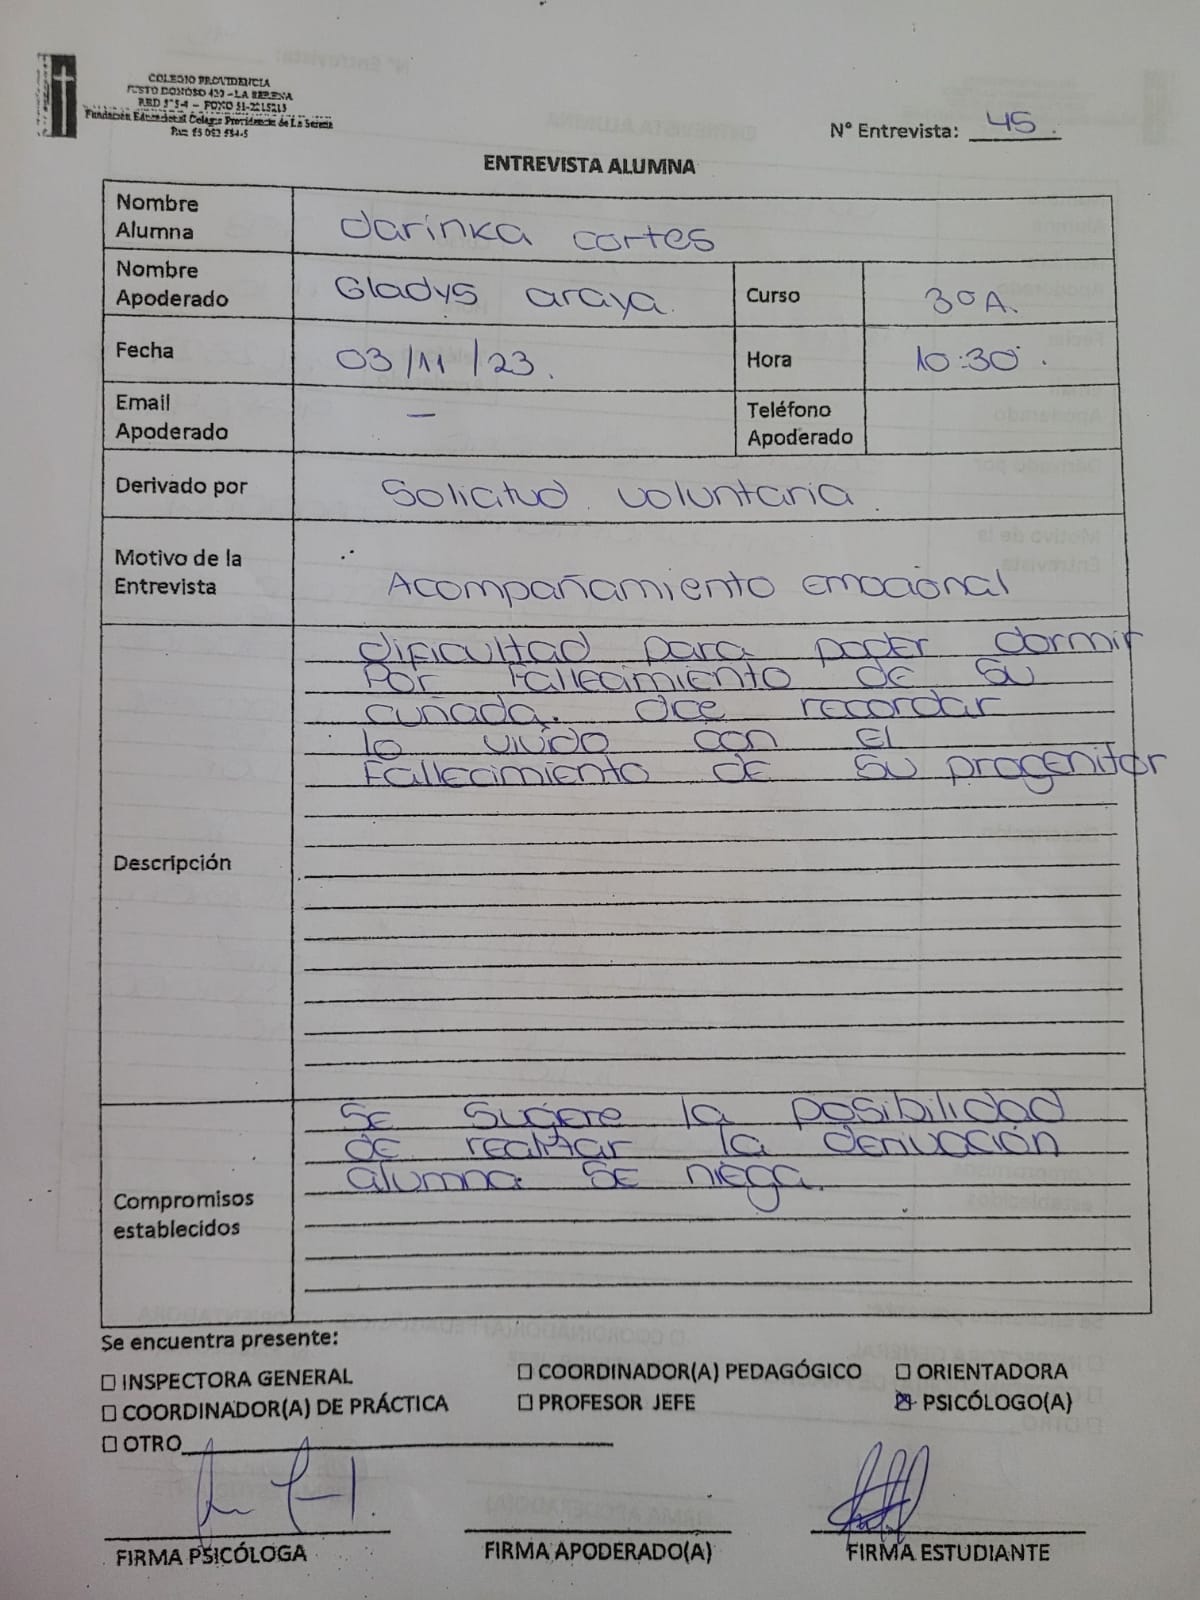 COLEGIO PROVIDENCIA
JUSTO DONOSO 420 - LA SERENA
RBD 575-4 - FONO 51-2215213
Fundación Educacional Colegio Providencia de La Serena
N° Entrevista: 45.
ENTREVISTA ALUMNA
Nombre Alumna darinka cortes
Nombre Apoderado Gladys araya. Curso 3°A.
Fecha 03/11/23. Hora 10:30.
Email Apoderado - Teléfono Apoderado
Derivado por Solicitud voluntaria.
Motivo de la Entrevista Acompañamiento Emocional
Descripción
dificultad para poder dormir
Por Fallecimiento de su
cuñada. dice recordar
lo vivido con el
Fallecimiento de su progenitor
Compromisos establecidos
Se Sugiere la posibilidad
de realizar la derivación
alumna se niega.
Se encuentra presente:
☐ INSPECTORA GENERAL ☐ COORDINADOR(A) PEDAGÓGICO ☐ ORIENTADORA
☐ COORDINADOR(A) DE PRÁCTICA ☐ PROFESOR JEFE ☒ PSICÓLOGO(A)
☐ OTRO
FIRMA PSICÓLOGA FIRMA APODERADO(A) FIRMA ESTUDIANTE